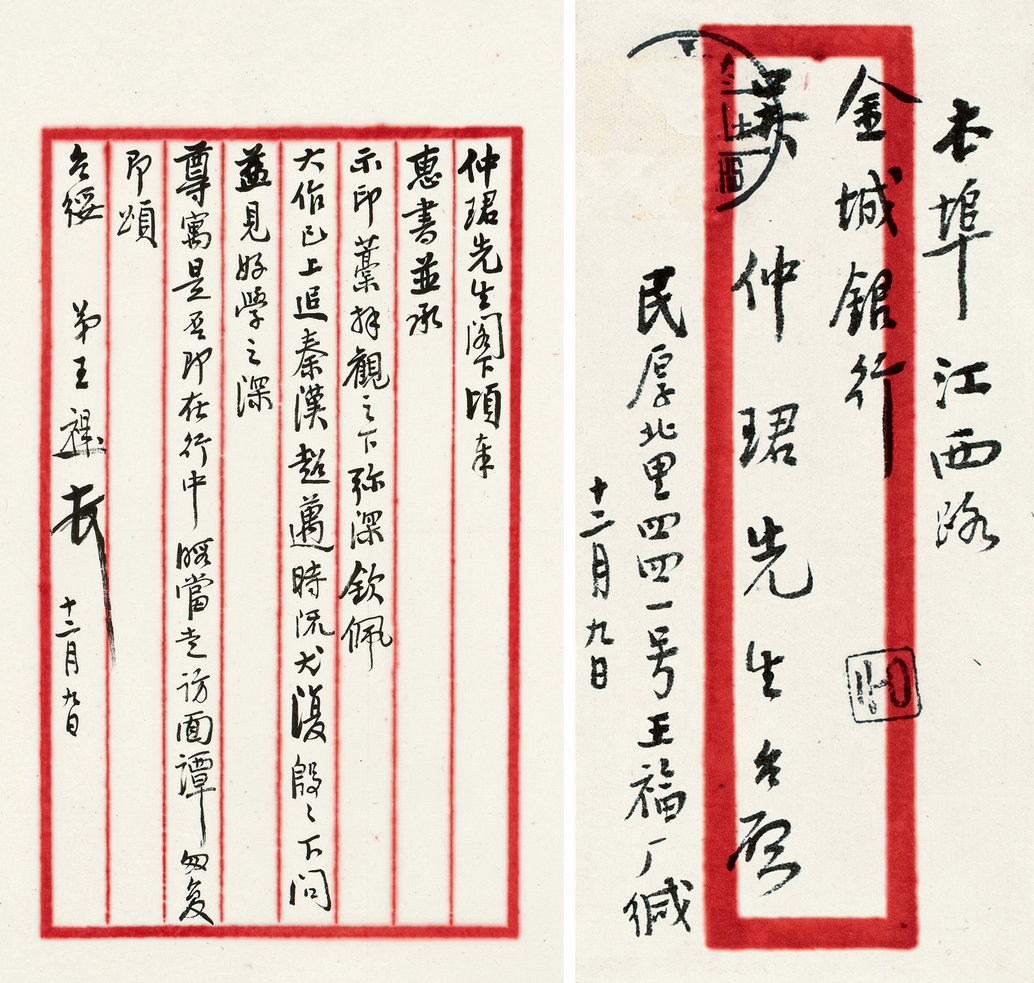 仲珺先生阁下頃奉
惠書並承
示印藁拜觀之下弥深欽佩
大作已上追秦漢超邁時流尤復殷々下問
益見好學之深
尊寓是否即在行中暇當走访面譚匆复
即頌
台綏 弟王禔 十二月九日
本埠江西路
金城銀行
吴仲珺先生台啓
民厚北里四四一号王福厂缄
十二月九日